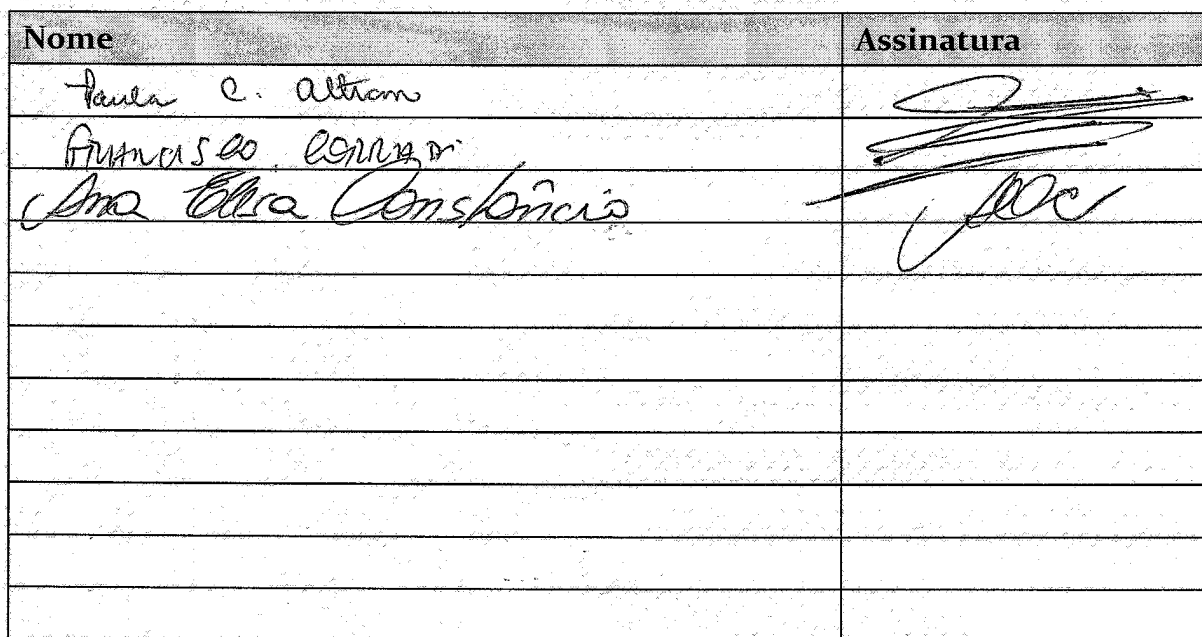 Nome Assinatura
Paula C. Altran
Francisco Corradi
Ana Elisa Constâncio